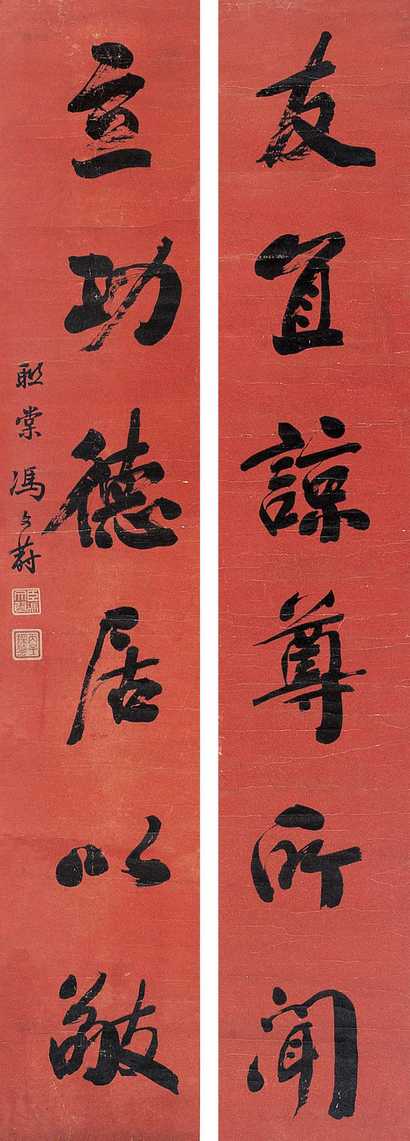 友宜諒尊所聞
立功德居以敬
聯棠馮文蔚